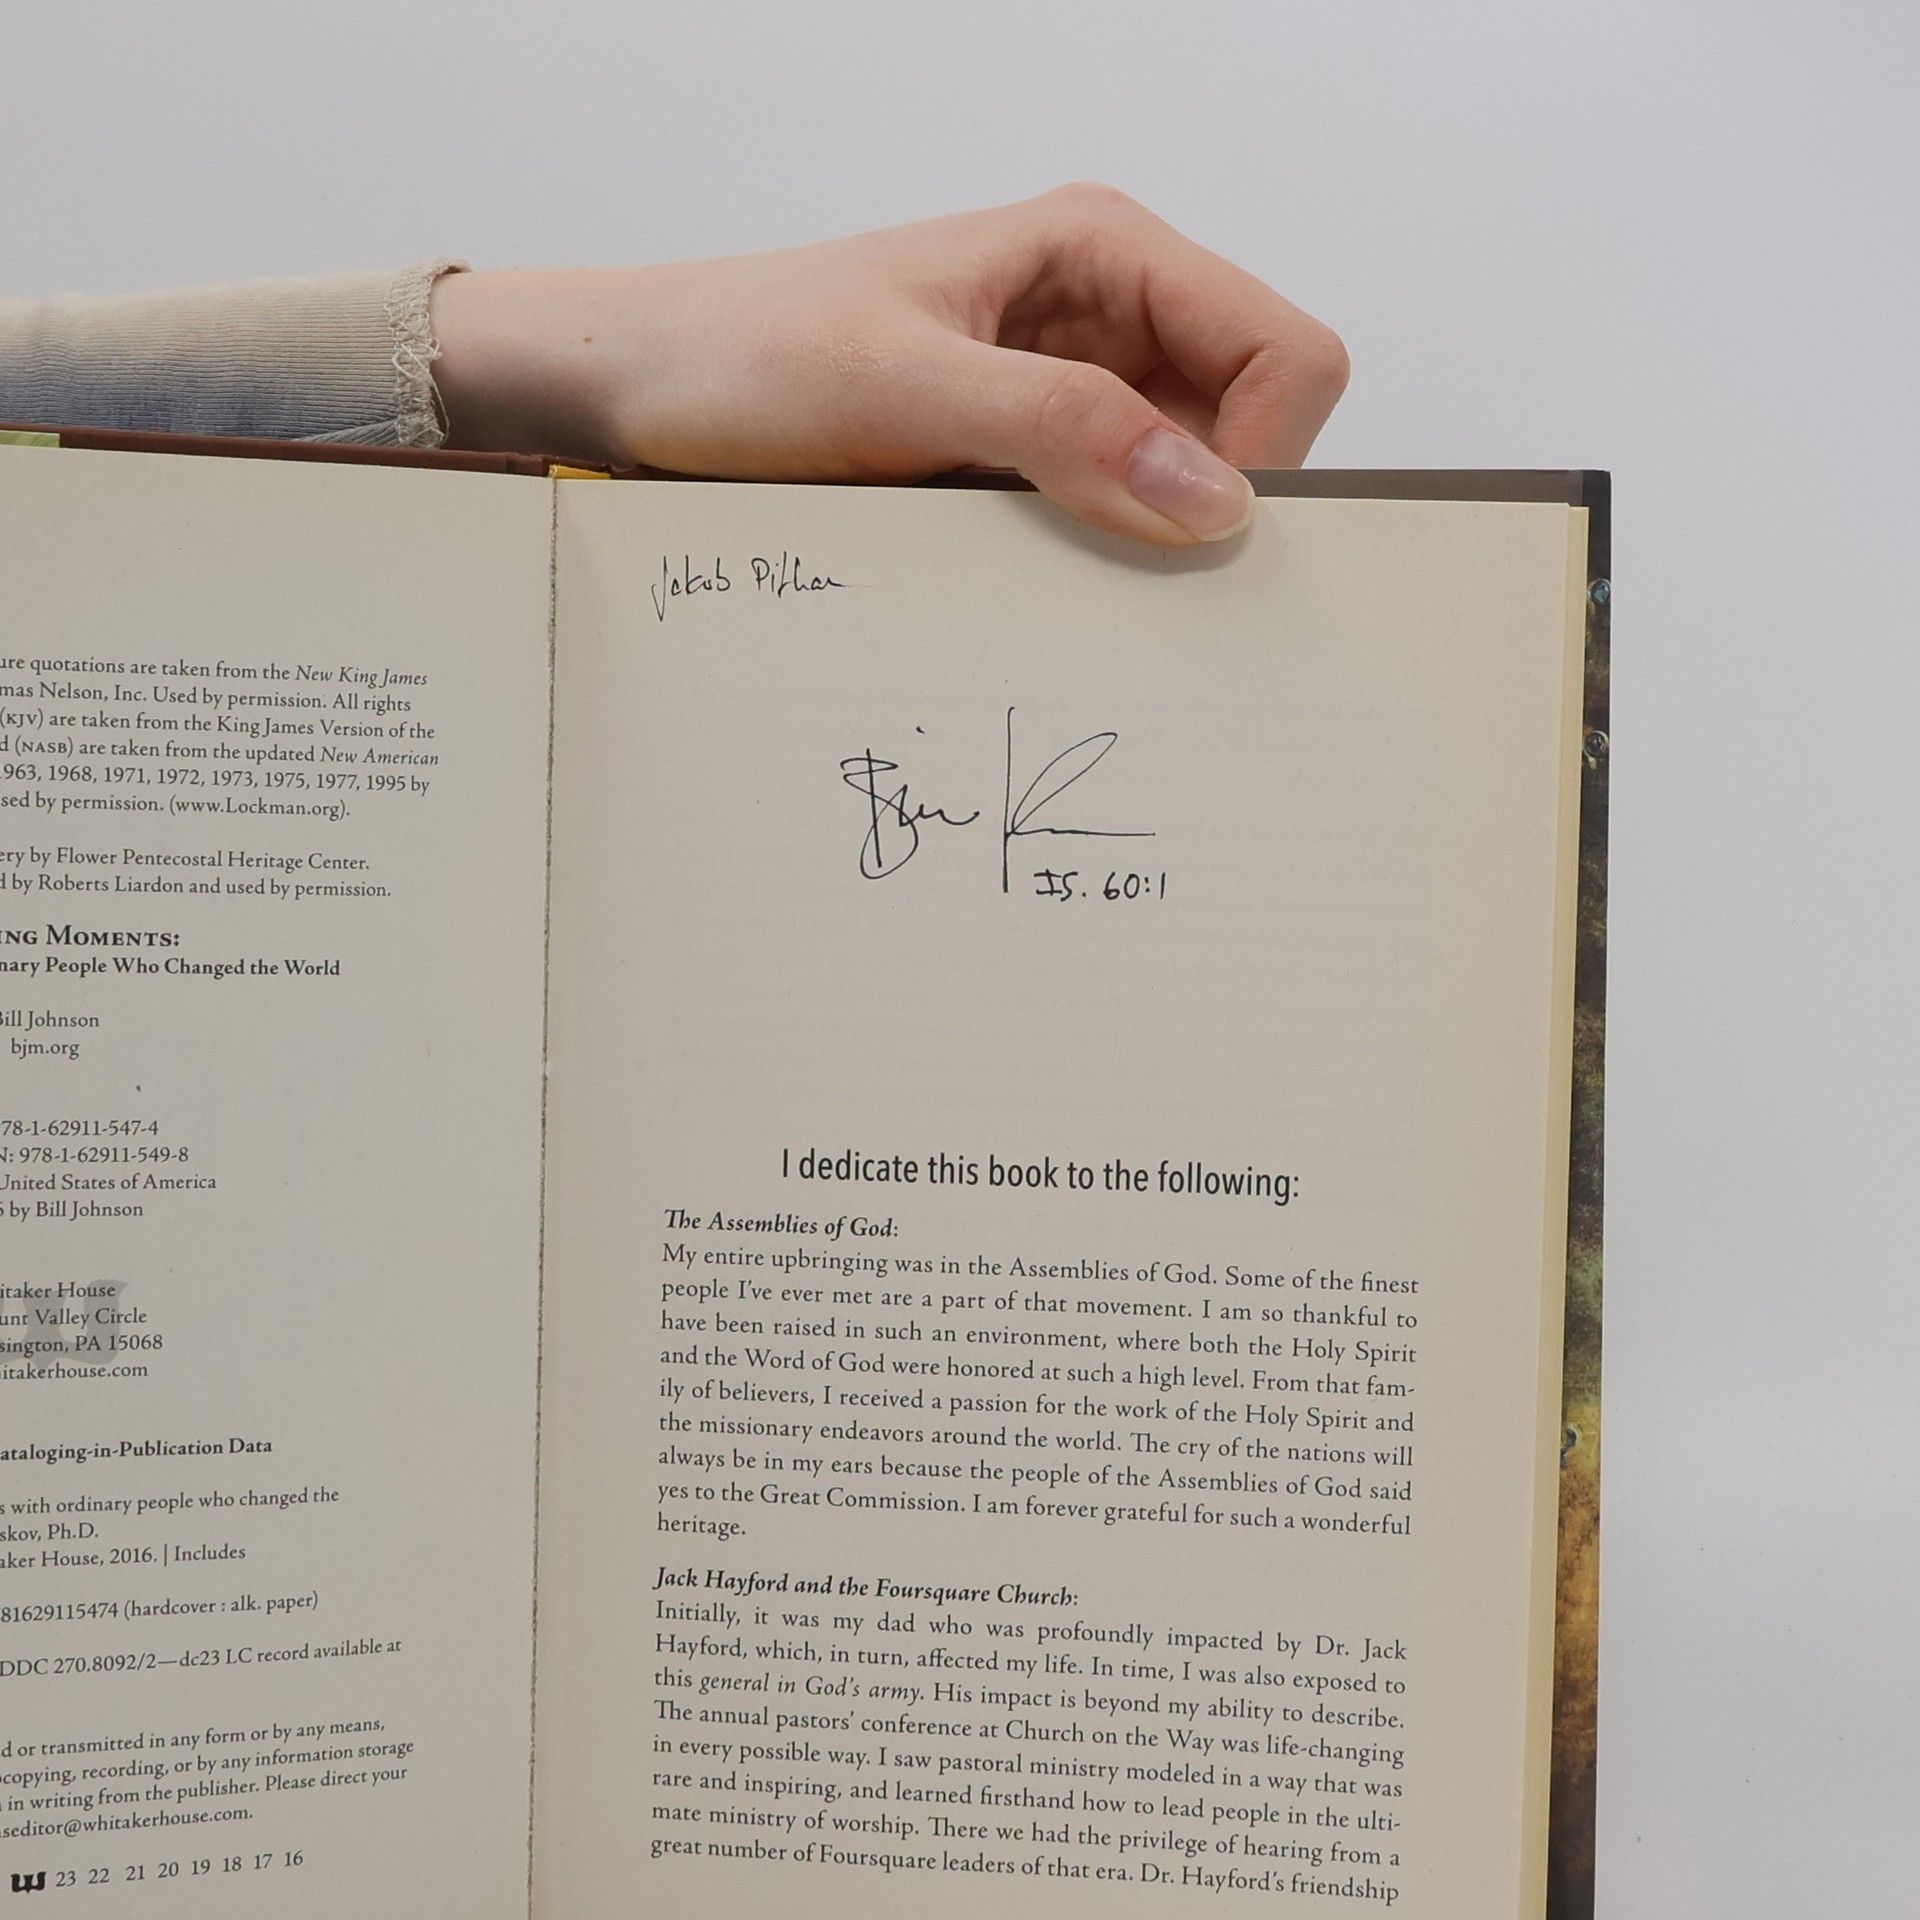 ure quotations are taken from the New King James
mas Nelson, Inc. Used by permission. All rights
(KJV) are taken from the King James Version of the
d (NASB) are taken from the updated New American
1963, 1968, 1971, 1972, 1973, 1975, 1977, 1995 by
sed by permission. (www.Lockman.org).
ery by Flower Pentecostal Heritage Center.
d by Roberts Liardon and used by permission.
ING MOMENTS:
nary People Who Changed the World
Bill Johnson
bjm.org
78-1-62911-547-4
N: 978-1-62911-549-8
United States of America
6 by Bill Johnson
itaker House
unt Valley Circle
sington, PA 15068
itakerhouse.com
ataloging-in-Publication Data
s with ordinary people who changed the
skov, Ph.D.
aker House, 2016. | Includes
81629115474 (hardcover : alk. paper)
DDC 270.8092/2—dc23 LC record available at
d or transmitted in any form or by any means,
ocopying, recording, or by any information storage
in writing from the publisher. Please direct your
seditor@whitakerhouse.com.
23 22 21 20 19 18 17 16
Jakub
IS. 60:1
I dedicate this book to the following:
The Assemblies of God:
My entire upbringing was in the Assemblies of God. Some of the finest
people I've ever met are a part of that movement. I am so thankful to
have been raised in such an environment, where both the Holy Spirit
and the Word of God were honored at such a high level. From that fam-
ily of believers, I received a passion for the work of the Holy Spirit and
the missionary endeavors around the world. The cry of the nations will
always be in my ears because the people of the Assemblies of God said
yes to the Great Commission. I am forever grateful for such a wonderful
heritage.
Jack Hayford and the Foursquare Church:
Initially, it was my dad who was profoundly impacted by Dr. Jack
Hayford, which, in turn, affected my life. In time, I was also exposed to
this general in God's army. His impact is beyond my ability to describe.
The annual pastors' conference at Church on the Way was life-changing
in every possible way. I saw pastoral ministry modeled in a way that was
rare and inspiring, and learned firsthand how to lead people in the ulti-
mate ministry of worship. There we had the privilege of hearing from a
great number of Foursquare leaders of that era. Dr. Hayford's friendship